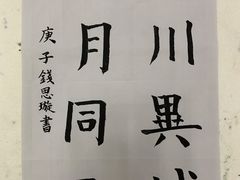 川異
月同
庚子錢思璇書